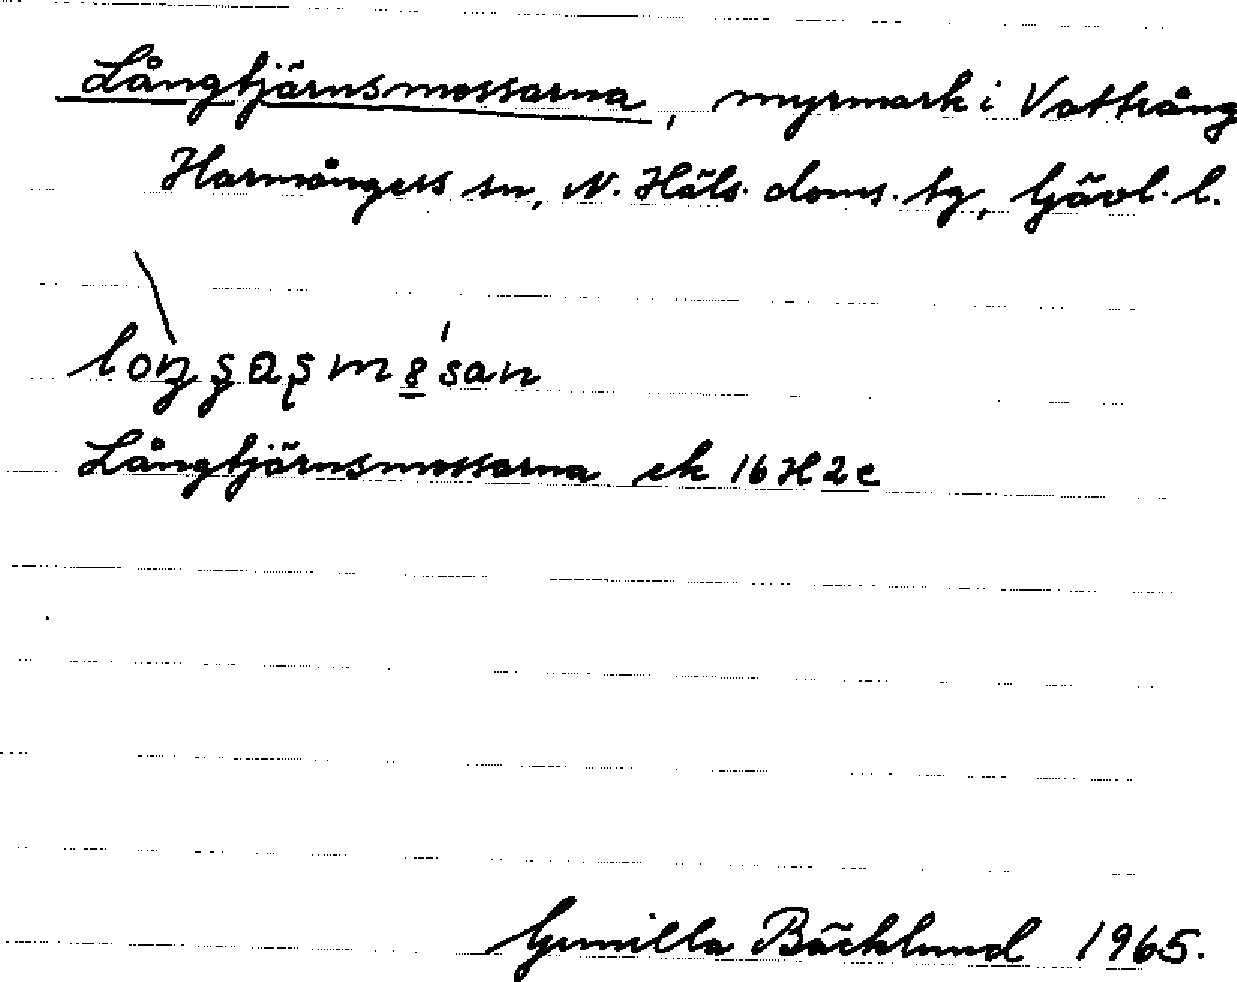 Långtjärnsmossarna, myrmark i Vattrång
Harmångers sn, N. Häls. doms. tg, Gävl. l.
Långtjärnsmossarna ek 16H2c
Gunilla Bäcklund 1965.